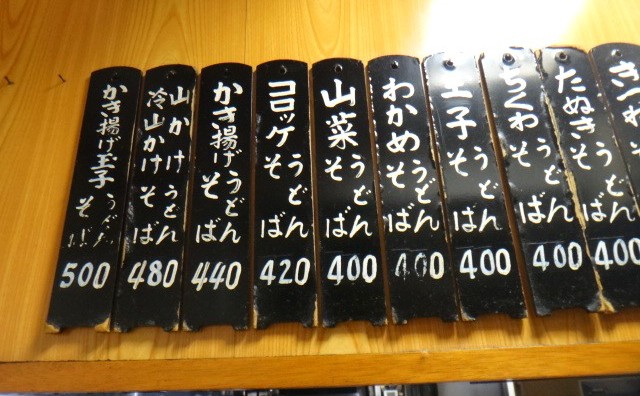 きつね
そうどばん
400
たぬき
そうどばん
400
ちくわ
そうどばん
400
玉子
そうどばん
400
わかめ
そうどばん
400
山菜
そうどばん
400
コロッケ
そば
うどん
420
かき揚げ
そば
うどん
440
山かけ
冷山かけ
そば
うどん
480
かき揚げ玉子
そば
うどん
500